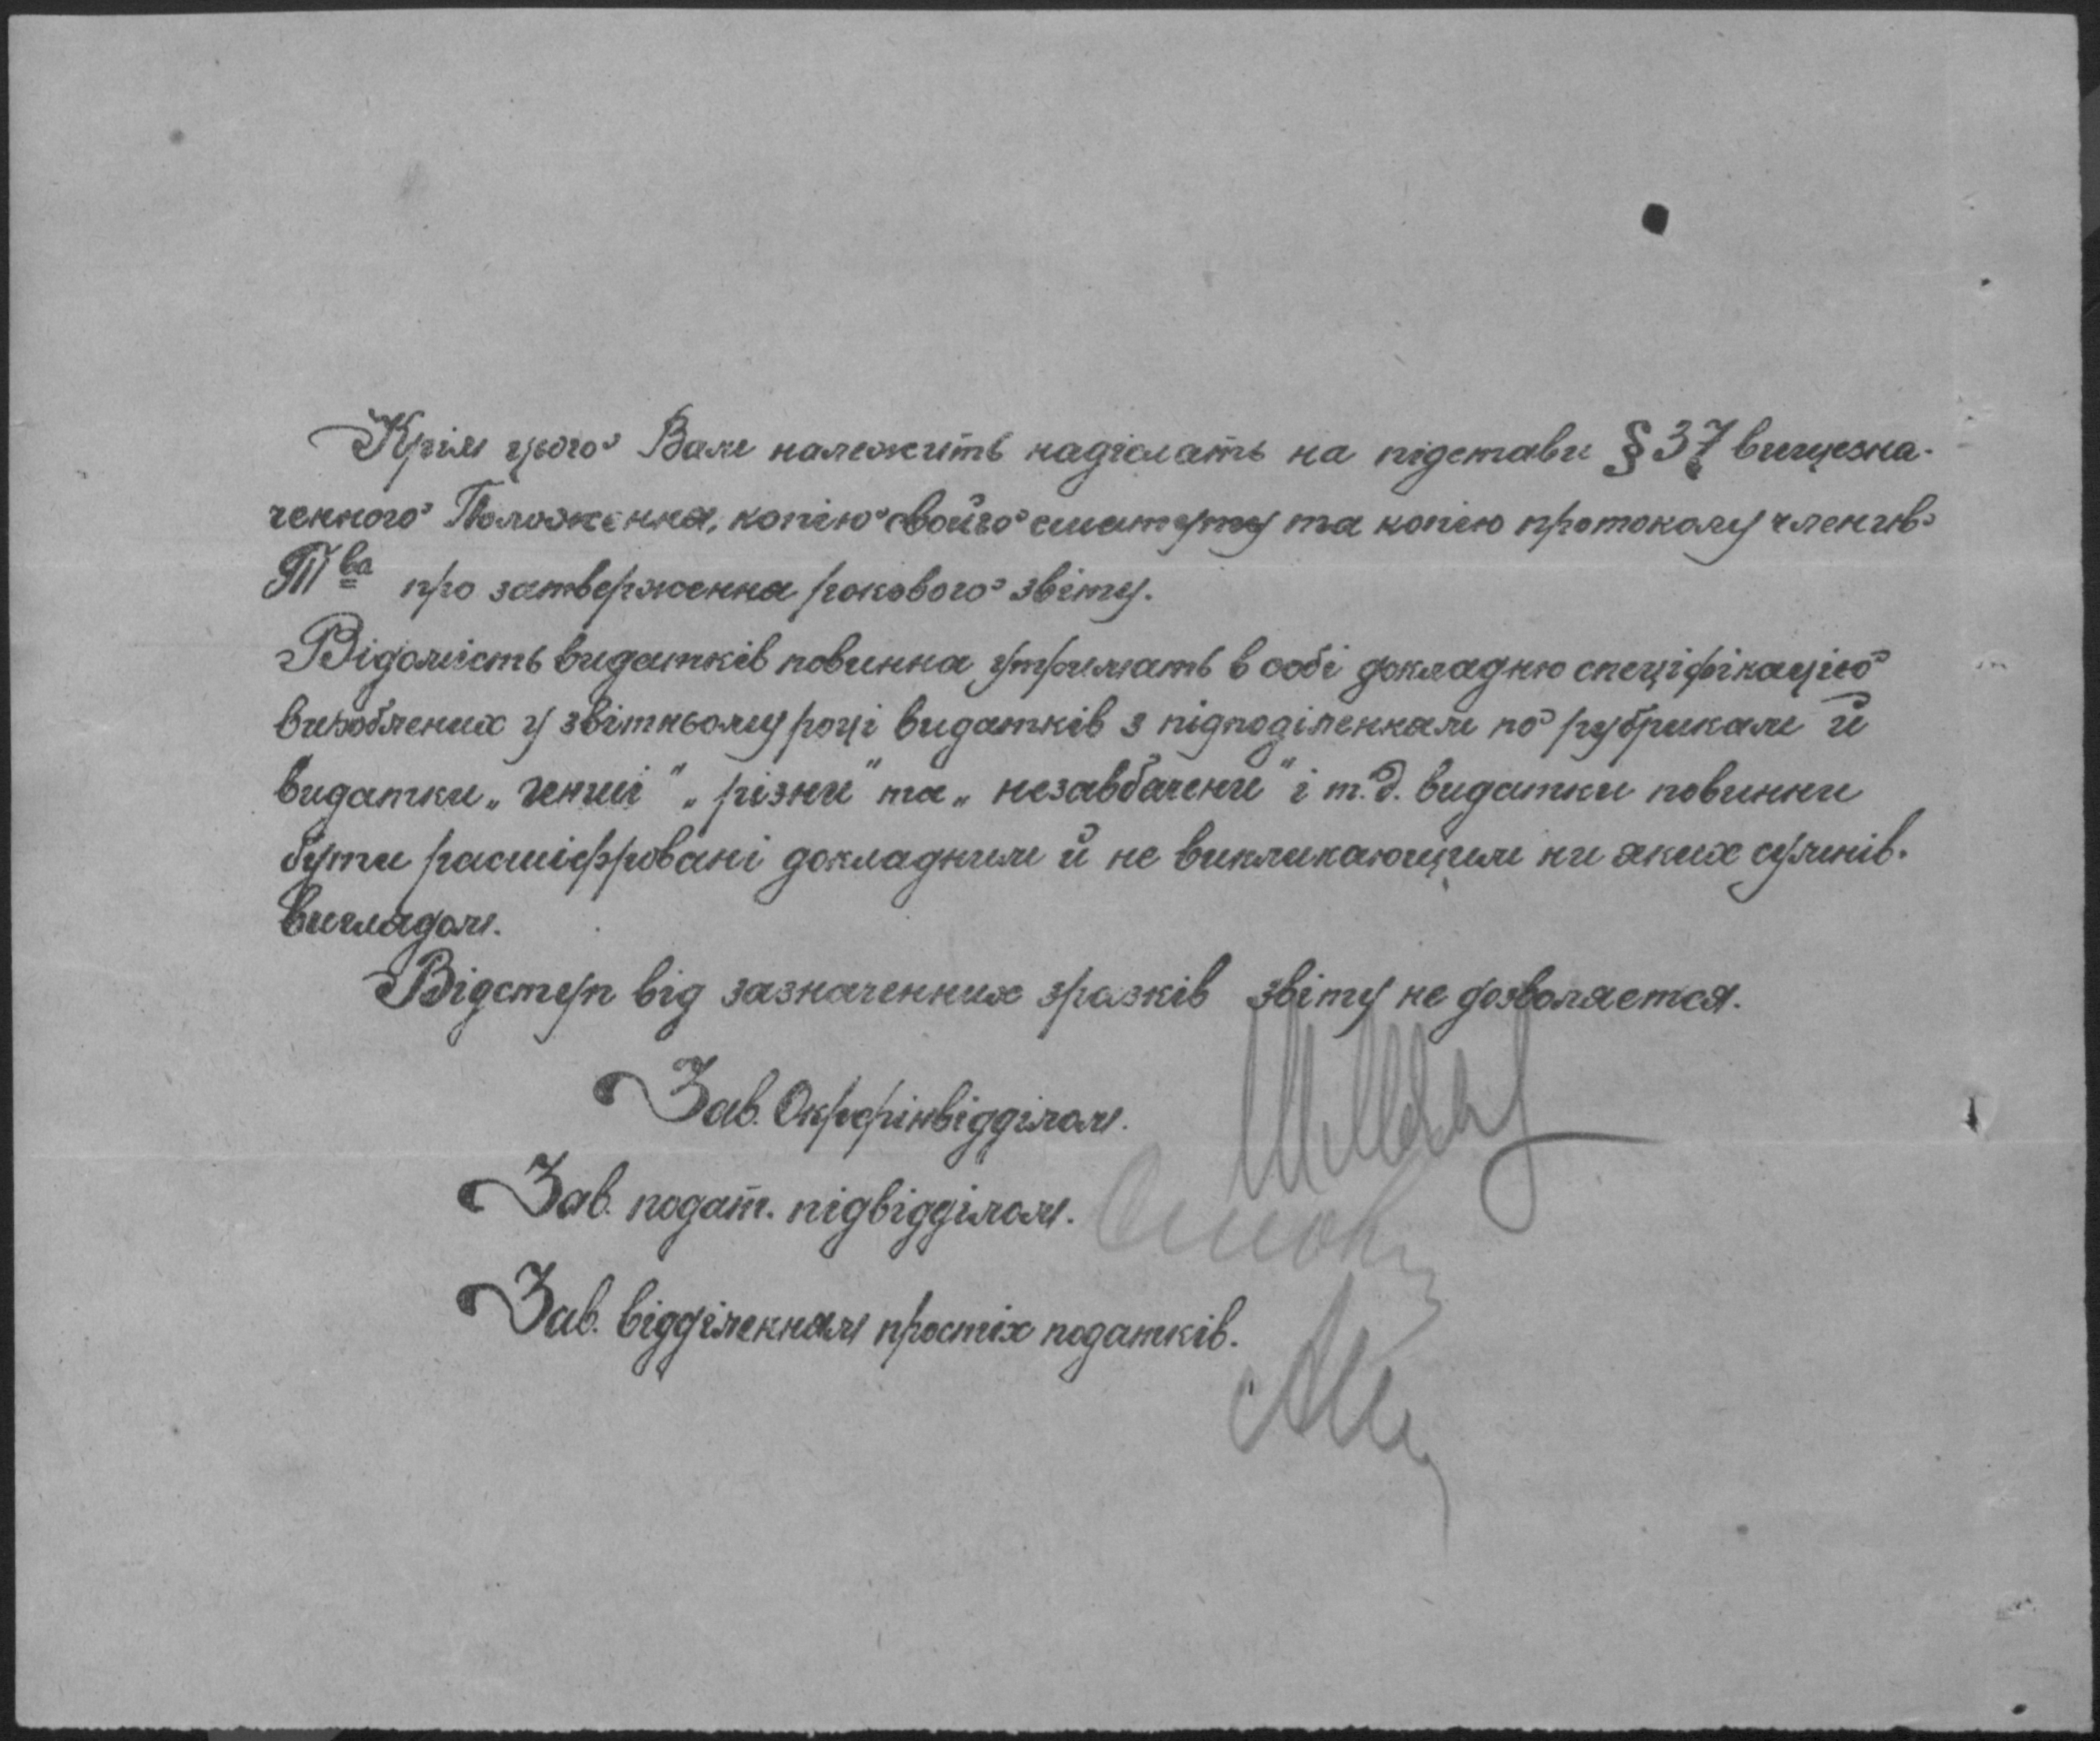 Крім цього Вам належить надіслать на підстави § 37 вищезна-
ченного Положення, копію свойго статуту та копію протоколу членив
Т ва про затверження рокового звіту.
Відомість видатків повинна утримать в собі докладню специфікацію
вироблених у звітньому році видатків з підподіленнам по рубрикам й
видатки „инші" „ різни" та „ незавбачени" і т.д. видатки повинни
бути расшіфровані докладним й не викликающим ни яких сумнів.
виглядом.
Відступ від зазначенних зразків звіту не дозволяется.
Зав. Окрфінвідділом.
Зав. подат. підвідділом.
Зав. відділеннам простіх податків.